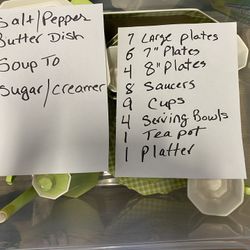 Salt/Pepper
Butter Dish
Soup To
Sugar/creamer
7 Large Plates
6 7" Plates
4 8" Plates
8 Saucers
9 Cups
4 Serving Bowls
1 Tea pot
1 Platter